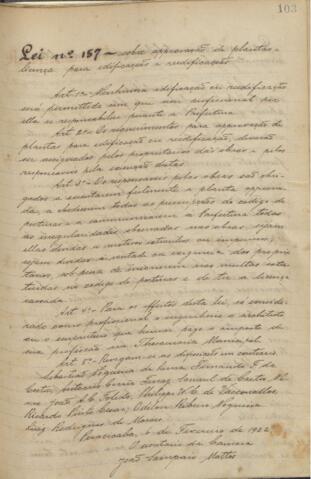 103
Lei nº 157 – sobre approvação de plantas e
licença para edificação e reedificação
Art. 1º Nenhuma edificação ou reedificação
será permittida sem que um profissional por
ella se responsabilise perante a Prefeitura
Art. 2º Os requerimentos para approvação de
plantas para edificação ou reedificação, deverão
ser assignados pelos proprietarios das obras e pelos
responsaveis pela execução destas.
Art. 3º Os responsaveis pelas obras são obri-
gados a executarem fielmente a planta approva-
da, a obedecerem todas as prescripções do codigo de
posturas e a communicarem á Prefeitura todas
as irregularidades observadas nas obras, sejam
ellas devidas a motivos
sejam devidas á vontade ou exigencia dos proprie-
tarios, sob pena de incorrerem nas multas esta-
tuidas no codigo de posturas e de ter a licença
cassada.
Art. 4º Para os effeitos desta lei, é conside-
rado como profissional o engenheiro o architecto
ou o constructor que houver pago o imposto de
sua profissão na Thesouraria Municipal
Art. 5º Revogam-se as disposições em contrario.
Nogueira de Lima, Fernando F. da
Costa, Antonio Corrêa Samuel de Castro Ne-
ves José A. C. Toledo, Philippe W. de Vasconcellos,
Ricardo Pinto Cesar, Odilon Ribeiro Nogueira
Luiz Rodrigues de Moraes.
Piracicaba, 6 de Fevereiro de 1922
O secretario da Camara
João Sampaio Mattos